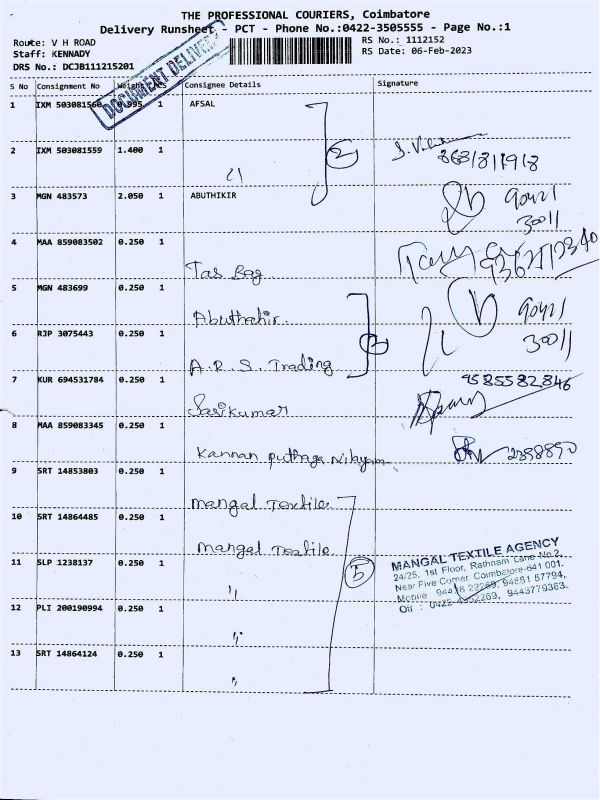 THE PROFESSIONAL COURIERS, Coimbatore
Delivery Runsheet - PCT - Phone No.:0422-3505555 - Page No.:1
Route: V H ROAD
RS No.: 1112152
Staff: KENNADY
RS Date: 06-Feb-2023
DRS No.: DCJB111215201
DOCUMENT DELIVERY
S No Consignment No Weight PCS Consignee Details Signature
1 IXM 503081560 0.995 1 AFSAL
2 IXM 503081559 1.400 1 〃 2 8681811918
3 MGN 483573 2.050 1 ABUTHIKIR 90421
30011
4 MAA 859083502 0.250 1 Tas Bag
5 MGN 483699 0.250 1 Abuthahir. 90421
30011
6 RJP 3075443 0.250 1 A.R.S. Trading 2
7 KUR 694531784 0.250 1 Sasikumar 9585582846
8 MAA 859083345 0.250 1 Kannan puthaga Nilayam 2398890
9 SRT 14853803 0.250 1 Mangal Textile
10 SRT 14864485 0.250 1 Mangal Textile
11 SLP 1238137 0.250 1 〃 5
12 PLI 200190994 0.250 1 〃
13 SRT 14864124 0.250 1 〃
MANGAL TEXTILE AGENCY
24/25, 1st Floor, Rathnam Lane No.2,
Near Five Corner, Coimbatore-641 001.
Mobile : 94438 22269, 94881 57794,
Off : 0422-4302269, 9443779363.